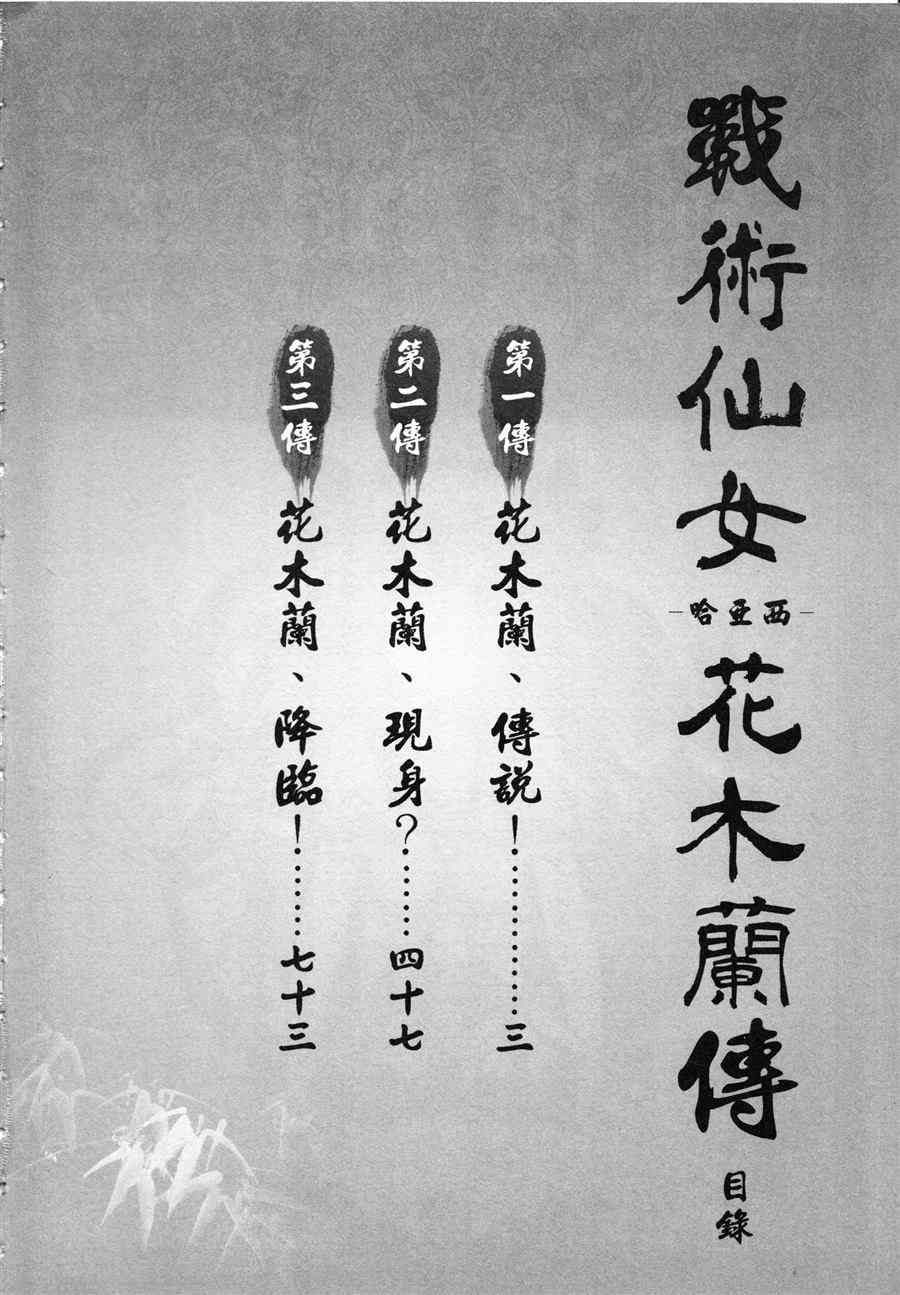 戰術仙女
哈亞西
花木蘭傳
目錄
第一傳 花木蘭、傳説!………………三
第二傳 花木蘭、現身?…………四十七
第三傳 花木蘭、降臨!…………七十三